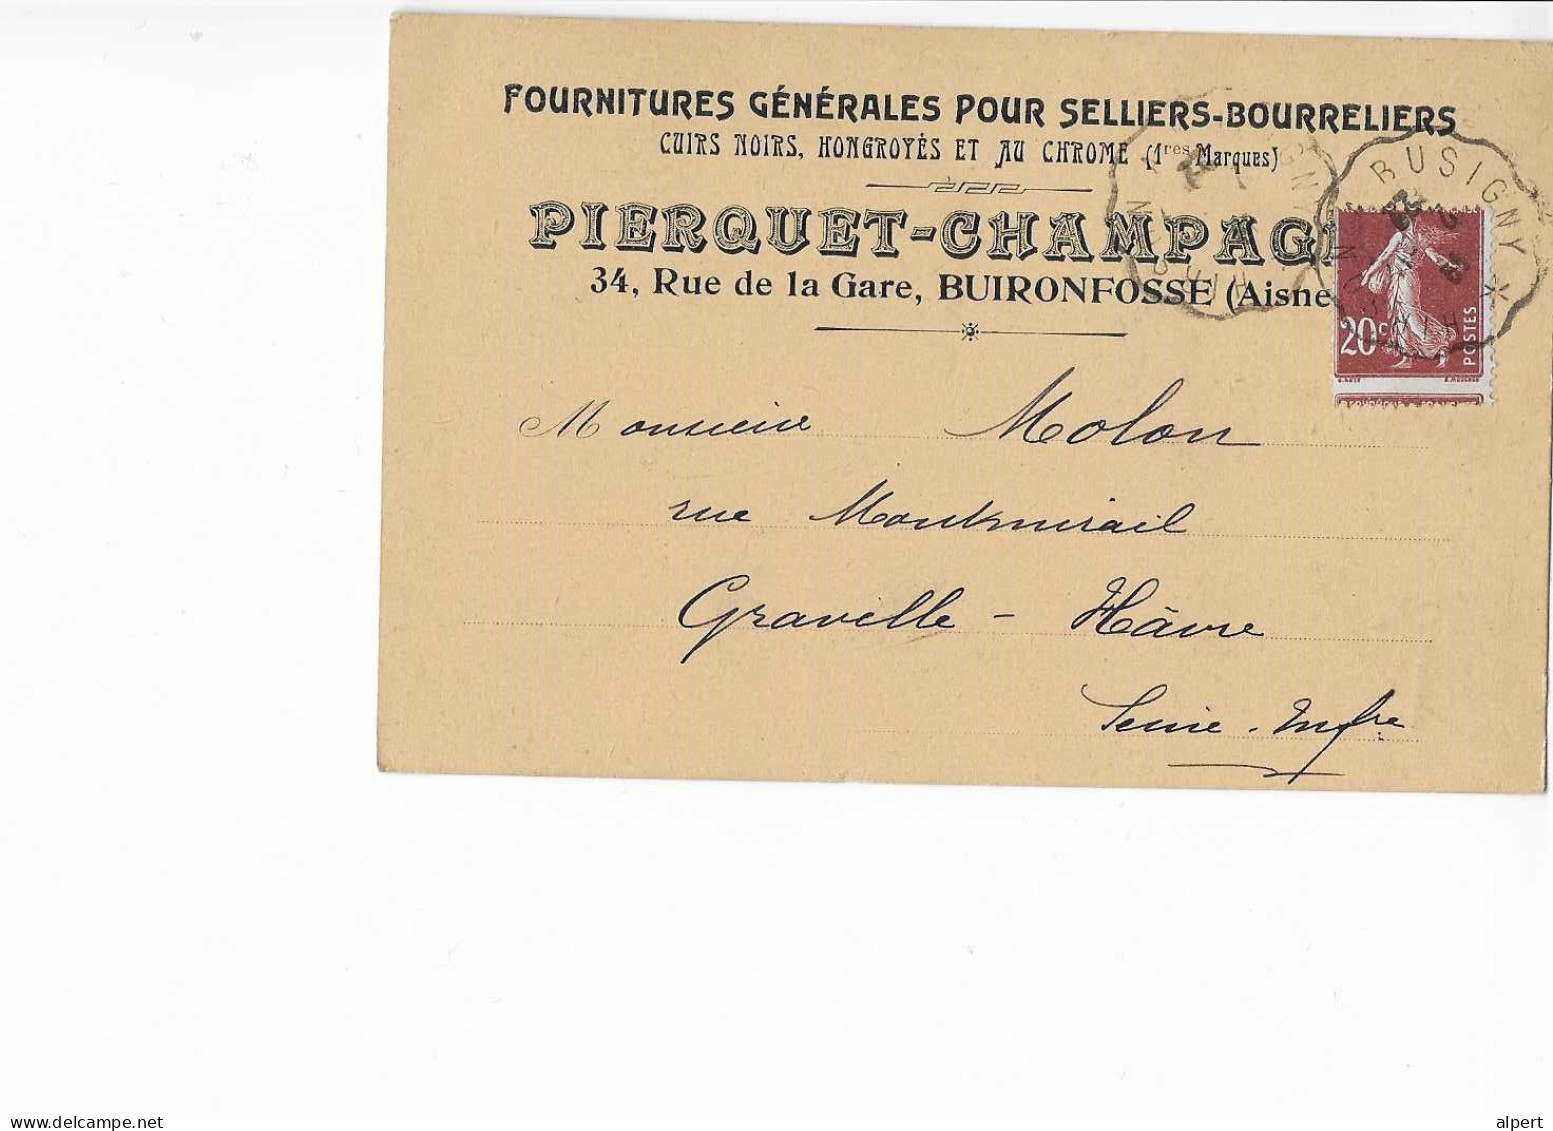 FOURNITURES GÉNÉRALES POUR SELLIERS-BOURRELIERS
CUIRS NOIRS, HONGROYÉS ET AU CHROME (1res Marques)
PIERQUET-CHAMPAG
34, Rue de la Gare, BUIRONFOSSE (Aisne
BUSIGNY
HIRSON
20c
POSTES
Monsieur Molon
rue Montmirail
Graville - Hâvre
Seine-Infre
www.delcampe.net
alpert